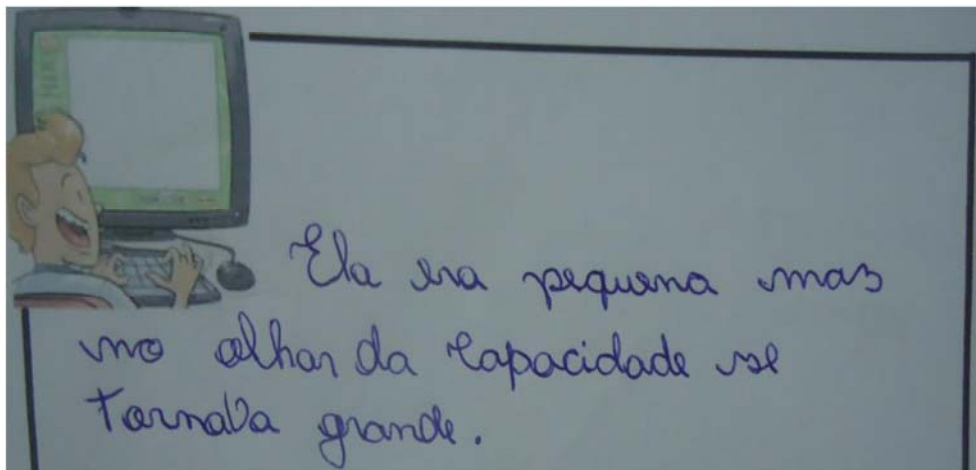 Ela era pequena mas
no olhar da capacidade se
tornava grande.